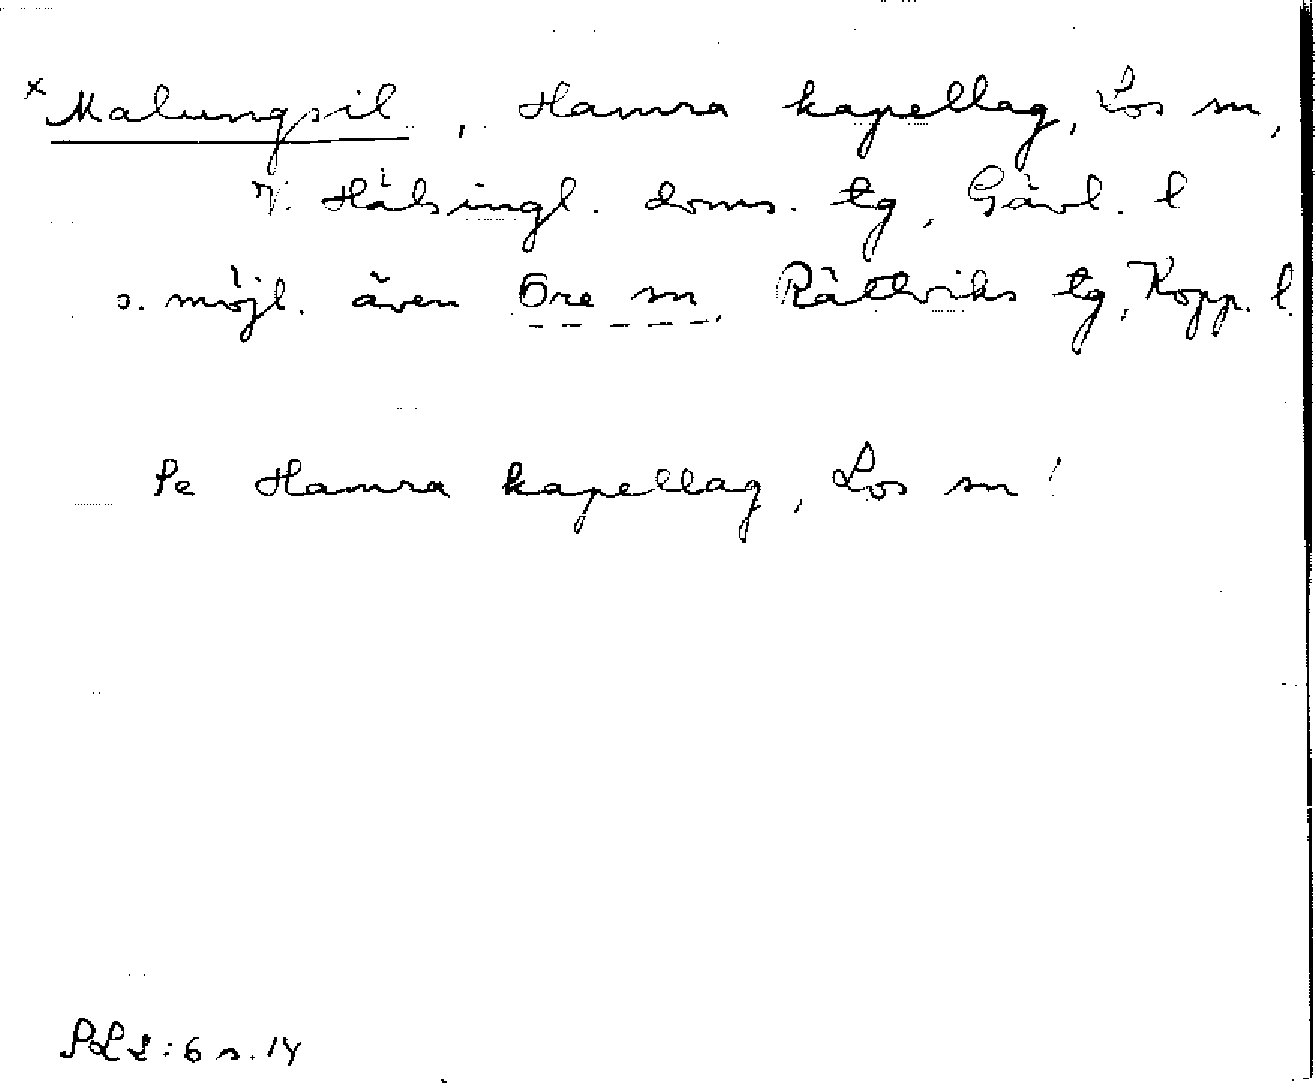 x Malungpil, Hamra kapellag, Los sn,
V. Hälsingl. doms. tg, Gävl. l
o. möjl. även Ore sn, Rättviks tg, Kopp. l.
Se Hamra kapellag, Los sn!
:6 s. 14